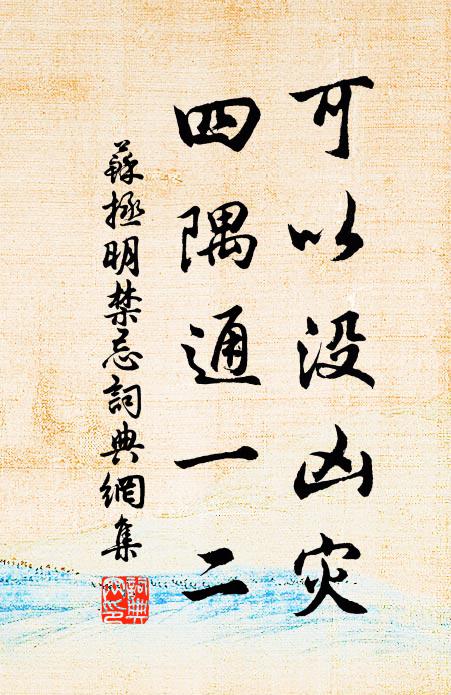 可以没凶灾
四隅通一二
蘇拯明禁忌詞典網集